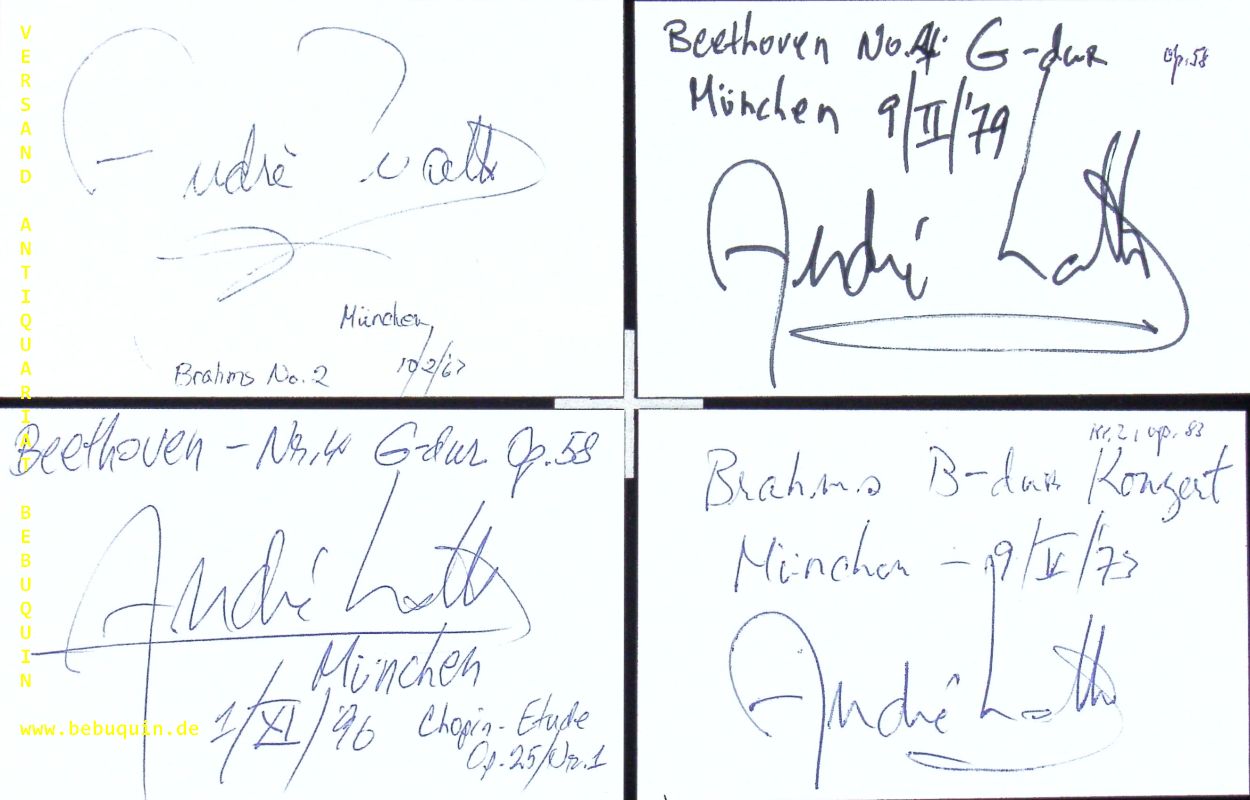 André Watts
München,
10/2/67
Brahms No. 2
Beethoven No. 4 G-dur op. 58
München 9/II/'79
André Watts
Beethoven - Nr. 4 G-dur Op. 58
André Watts
München
1/XI/'96
Chopin-Etude
Op. 25/Nr. 1
Nr. 2, op. 83
Brahms B-dur Konzert
München - 9/V/'73
André Watts
VERSAND ANTIQUARIAT BEBUQUIN
www.bebuquin.de